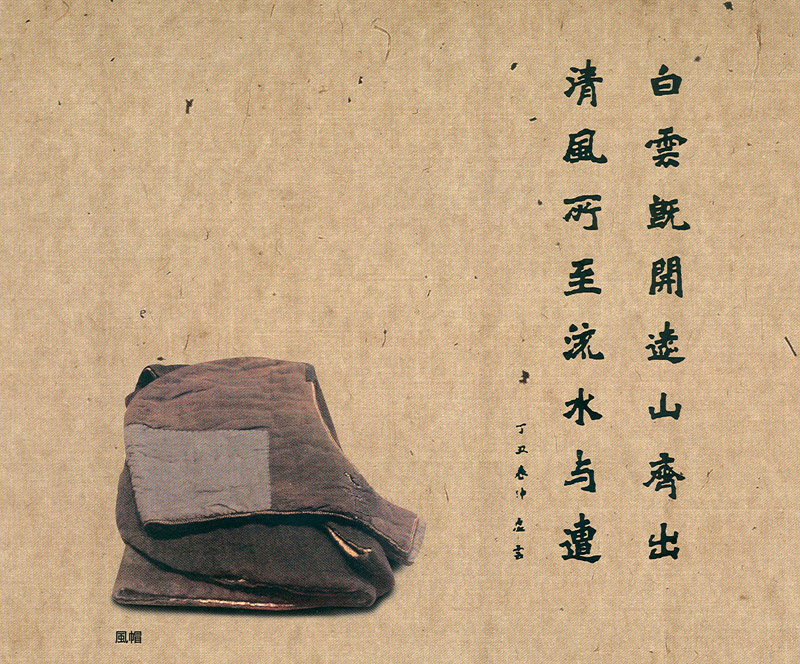 白雲既開遠山齊出
清風所至流水与遭
丁丑春仲 虛雲
風帽